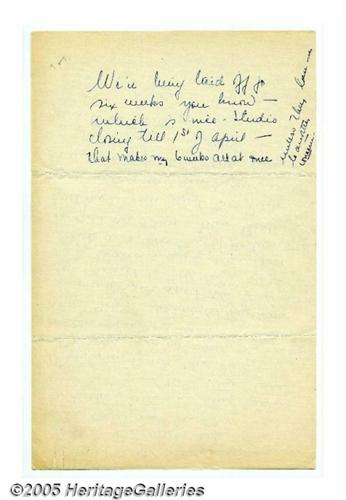 We're being laid off for
six weeks you know -
which is nice - Studio
closing till 1st of April -
that makes my 6 weeks all at once
unless they loan me
to another
©2005 HeritageGalleries